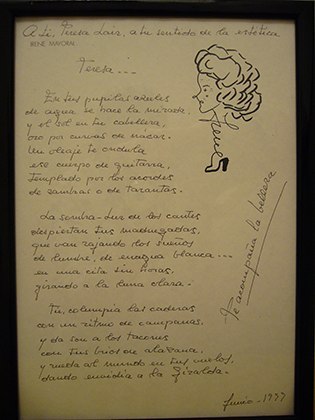 A ti, Teresa Loiz, a tu sentido de la estética
IRENE MAYORAL
Teresa...
En tus pupilas azules
de agua se hace la mirada,
y el sol en tu cabellera,
oro por curvas de nácar.
Un oleaje te ondula
ese cuerpo de guitarra,
templado por los acordes
de zambras o de tarantas.
La sombra-luz de los cantes
despiertan tus madrugadas,
que van rajando los sueños
de lumbre, de enagua blanca...
en una cita sin horas,
girando a la luna clara.
Tú, columpia las caderas
con un ritmo de campanas,
y da son a los tacones
con tus bríos de alazana,
y rueda al mundo en tus vuelos,
dando envidia a la Giralda.
Irene
Te acompaña la belleza
Junio-1997